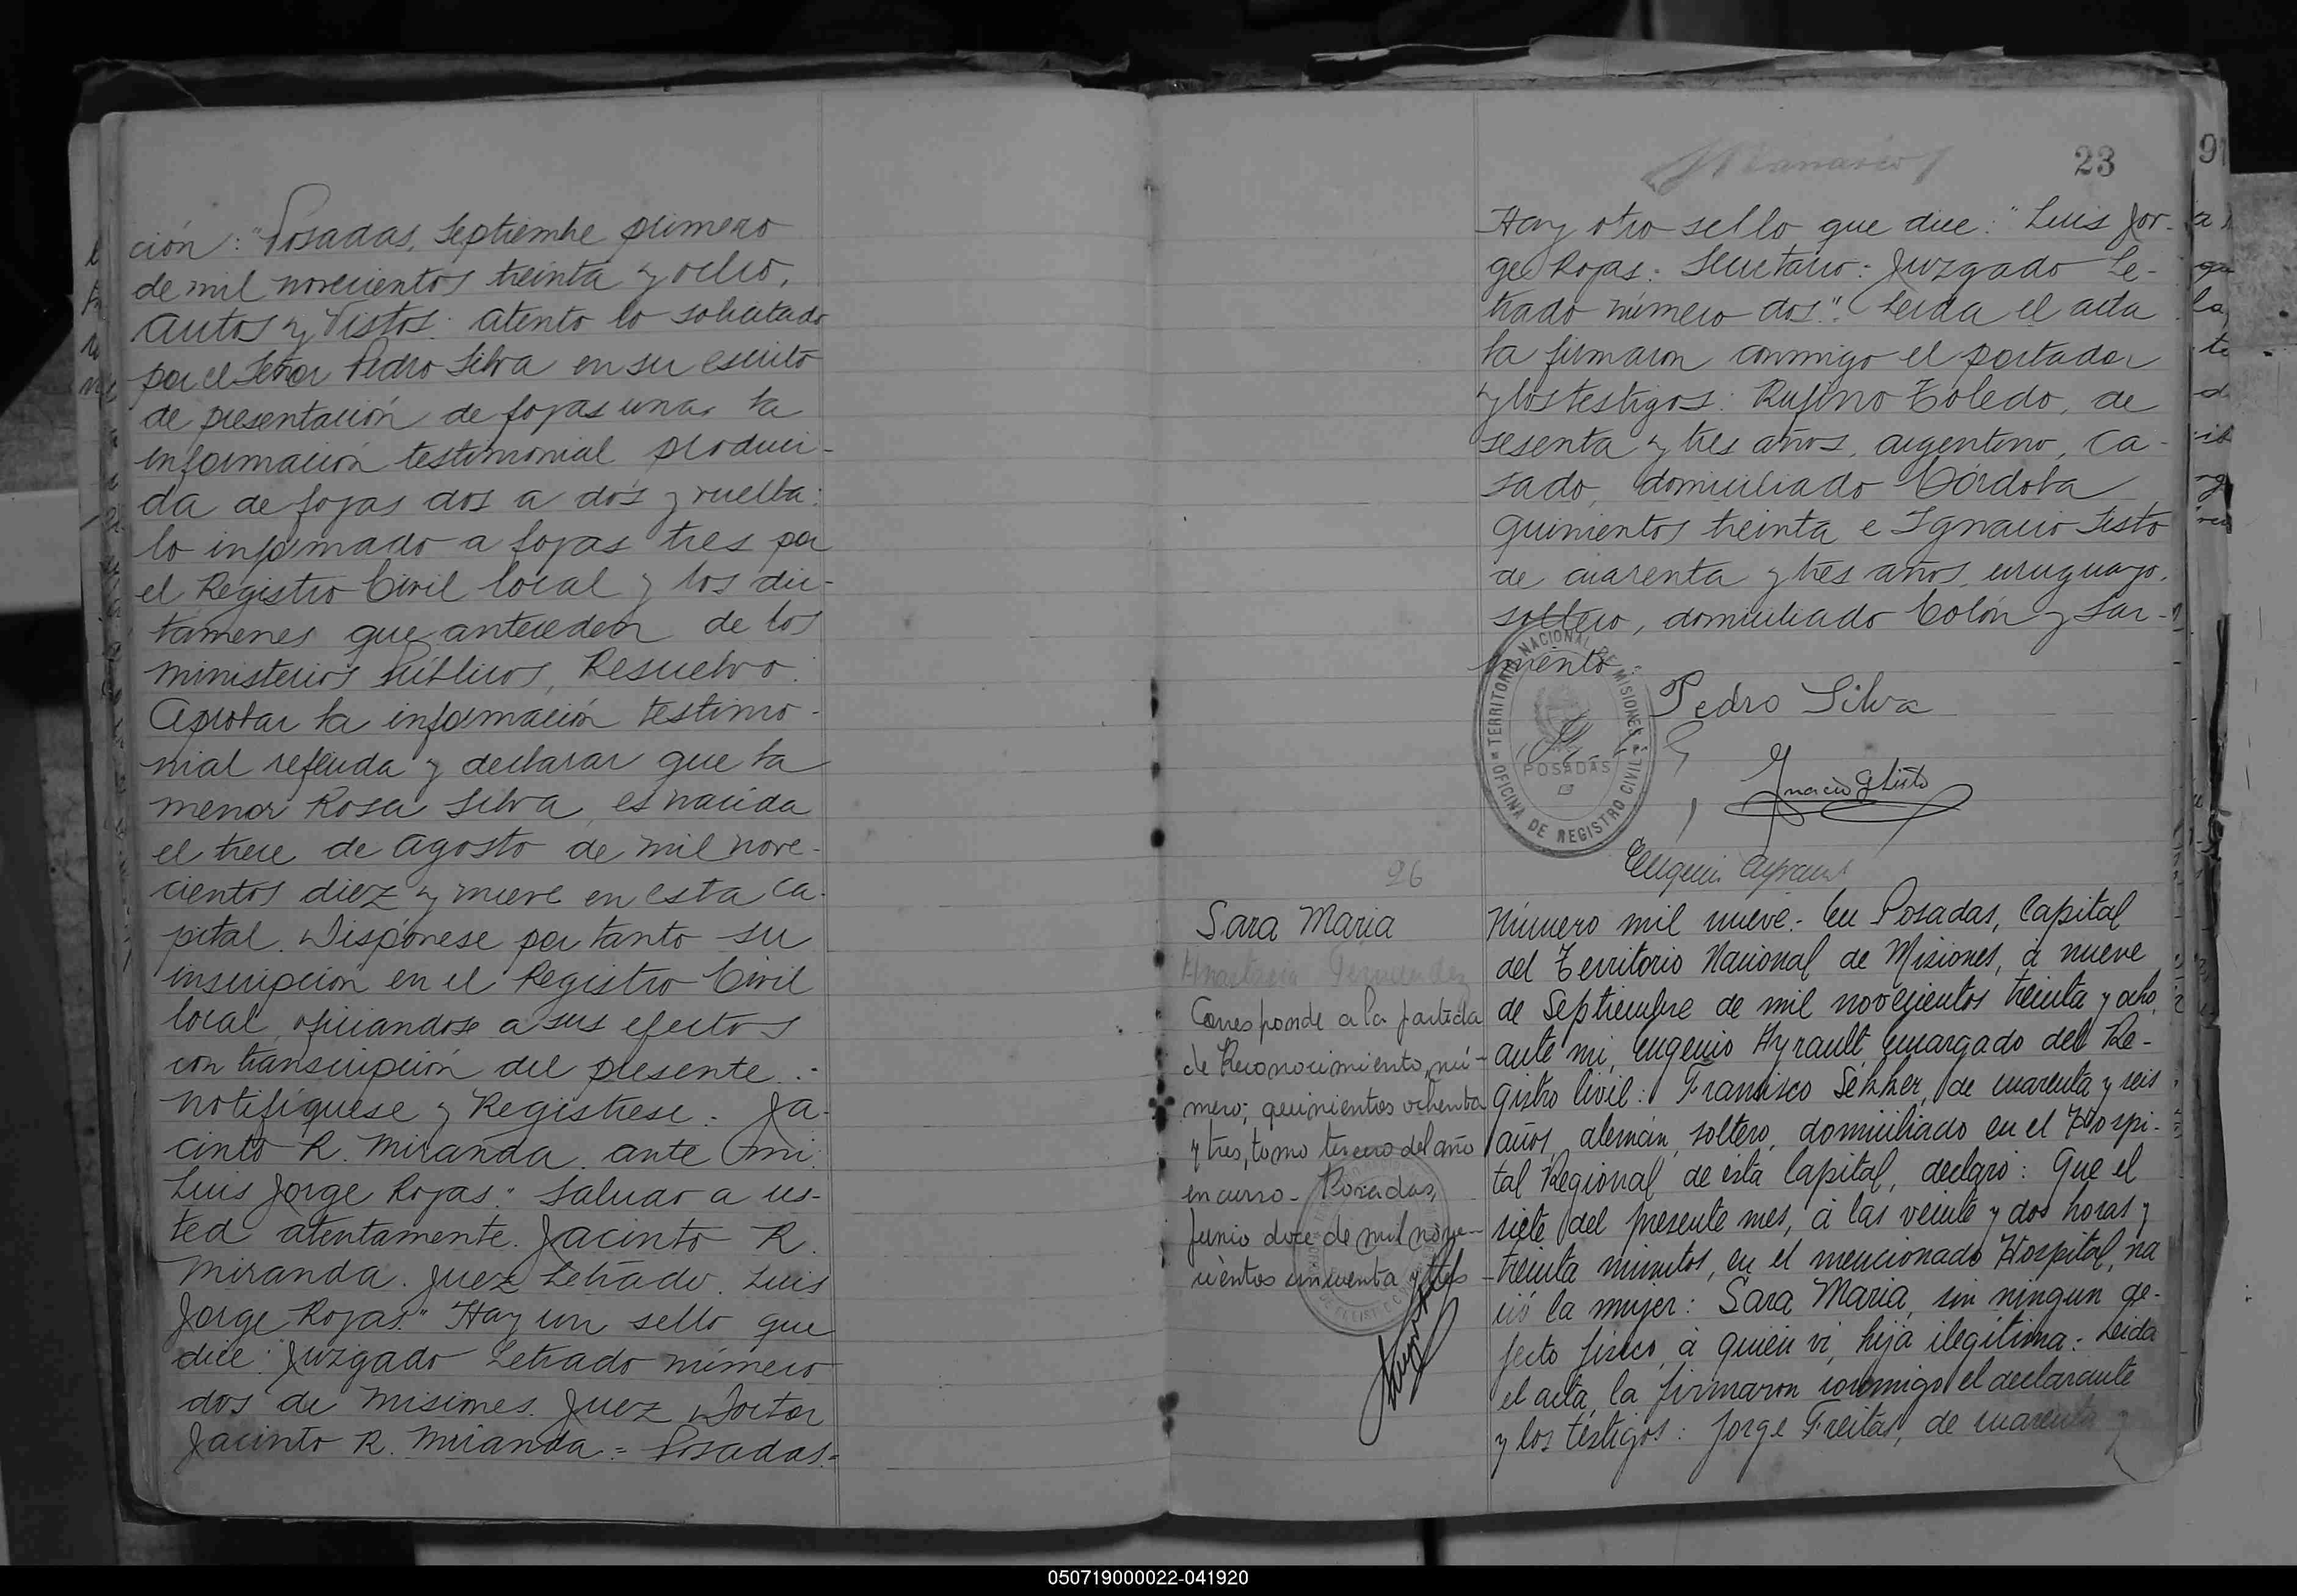 ción: "Posadas, Septiembre primero
de mil novecientos treinta y ocho,
Autos y Vistos: atento lo solicitado
por el Señor Pedro Silva en su escrito
de presentación de fojas una, la
información testimonial produci-
da de fojas dos a dos y vuelta:
lo informado a fojas tres por
el Registro Civil local y los dic-
támenes que anteceden de los
ministerios Públicos, Resuelvo:
Aprobar la información testimo-
nial referida y declarar que la
menor Rosa Silva, es nacida
el trece de Agosto de mil nove-
cientos diez y nueve en esta Ca-
pital. Dispónese por tanto su
inscripción en el Registro Civil
local, oficiandose a sus efectos
con transcripción del presente.-
Notifíquese y Regístrese. Ja-
cinto R. Miranda. ante mi:
Luis Jorge Rojas." Saludo a us-
ted atentamente. Jacinto R.
Miranda. Juez Letrado. Luis
Jorge Rojas." Hay un sello que
dice: Juzgado Letrado número
dos de Misiones. Juez Doctor
Jacinto R. Miranda = Posadas.=
23
Hay otro sello que dice: "Luis Jor-
ge Rojas: Secretario: Juzgado Le-
trado número dos." Leida el acta
la firmaron conmigo el portador
y los testigos: Rufino Toledo, de
sesenta y tres años, argentino, ca-
sado, domiciliado Córdoba
quinientos treinta e Ignacio Sisto
de cuarenta y tres años, uruguayo,
soltero, domiciliado Colón y Sar-
miento.
Pedro Silva
TERRITORIO NACIONAL DE MISIONES
POSADAS
OFICINA DE REGISTRO CIVIL
Ignacio G Sisto
Eugenio Ayrault
26
Sara Maria
Anastacia Fernandez
Corresponde a la partida
de Reconocimiento, nú-
mero; quinientos ochenta
y tres, tomo tercero del año
en curso - Posadas,
Junio doce de mil nove-
cientos cincuenta y tres
Número mil nueve.- En Posadas, Capital
del Territorio Nacional de Misiones, á nueve
de Septiembre de mil novecientos treinta y ocho,
ante mi, Eugenio Ayrault, Encargado del Re-
gistro Civil: Francisco Sekker, de cuarenta y seis
años, alemán, soltero, domiciliado en el Hospi-
tal Regional de esta Capital, declaró: Que el
siete del presente mes, á las veinte y dos horas y
treinta minutos, en el mencionado Hospital, na
ció la mujer: Sara Maria, sin ningun de-
fecto físico, á quien vi, hija ilegítima.- Leida
el acta, la firmaron conmigo el declarante
y los testigos: Jorge Freitas, de cuarenta y
050719000022-041920